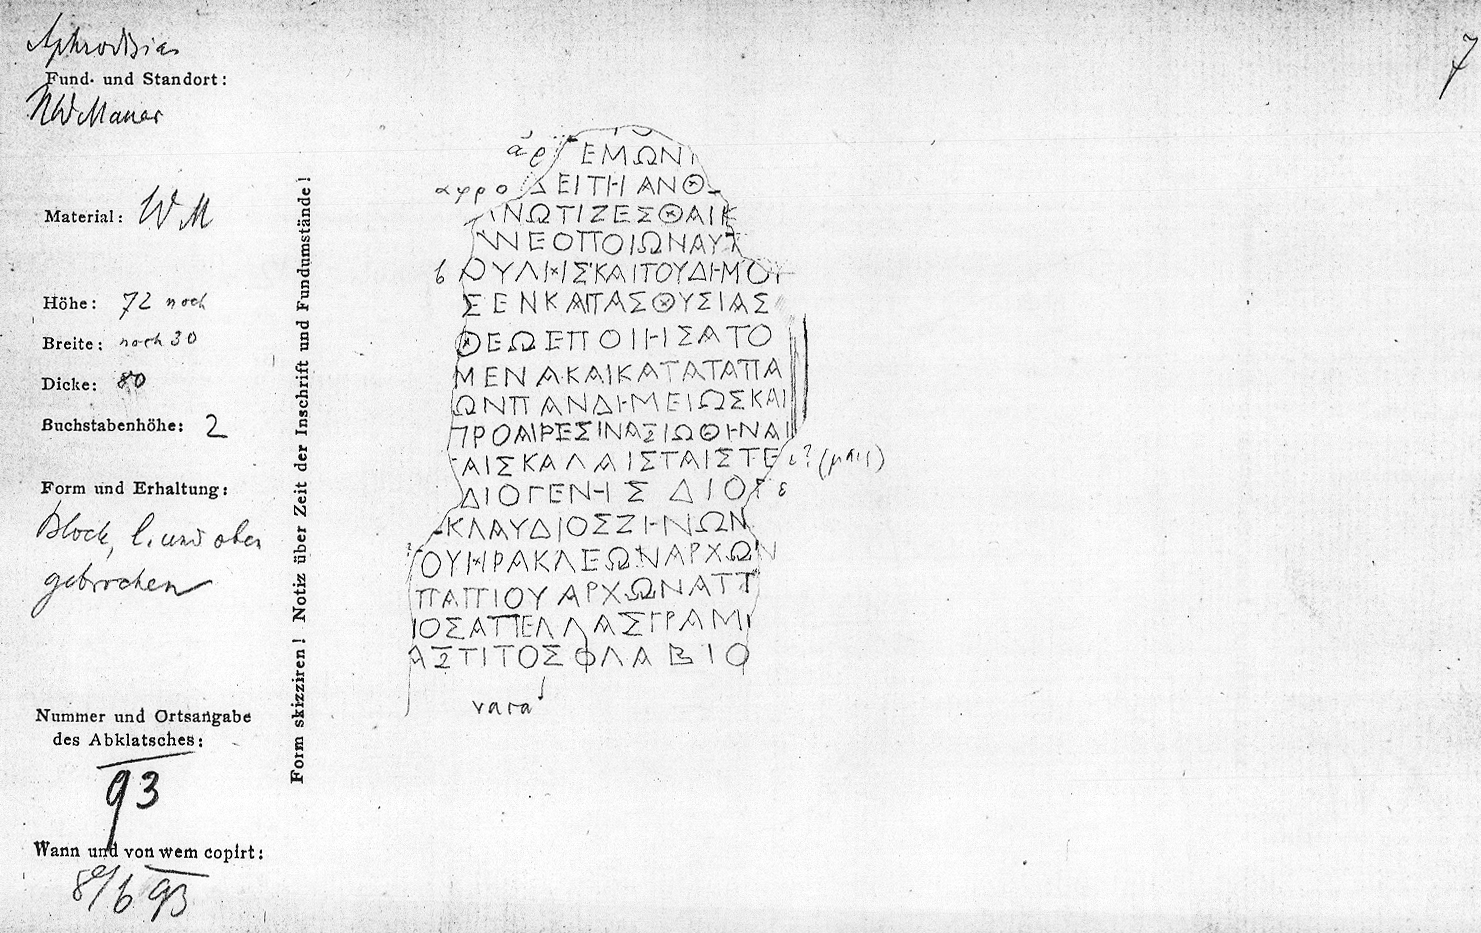 Aphrodisias
7
Fund- und Standort:
NW Mauer
Material: WM
Höhe: 72 noch
Breite: noch 30
Dicke: 80
Buchstabenhöhe: 2
Form und Erhaltung:
Block, l. und oben
gebrochen
Nummer und Ortsangabe
des Abklatsches:
93
Wann und von wem copirt:
8/6 93
Form skizziren! Notiz über Zeit der Inschrift und Fundumstände!
αρ ΕΜΩΝΙ
αφρο ΔΕΙΤΗΑΝΘ
ΝΩΤΙΖΕΣΘΑΙΚ
ΝΕΟΠΟΙΩΝΑΥΤ
β ΟΥΛΗΣΚΑΙΤΟΥΔΗΜΟΥ
ΣΕΝΚΑΙΠΑΣΘΥΣΙΑΣ
ΘΕΩΕΠΟΙΗΣΑΤΟ
ΜΕΝΑΚΑΙΚΑΤΑΤΑΠΑ
ΩΝΠΑΝΔΗΜΕΙΩΣΚΑΙ
ΠΡΟΑΙΡΕΣΙΝΑΞΙΩΘΗΝΑΙ
ΑΙΣΚΑΛΑΙΣΤΑΙΣΤΕ ι? (μαις)
ΔΙΟΓΕΝΗΣ ΔΙΟΓ ε
ΚΛΑΥΔΙΟΣΖΗΝΩΝ
ΟΥΗΡΑΚΛΕΩΝΑΡΧΩΝ
ΠΑΠΙΟΥΑΡΧΩΝΑΤΤ
ΙΟΣΑΠΕΛΛΑΣΓΡΑΜ
ΑΣΤΙΤΟΣΦΛΑΒΙΟ
vacat